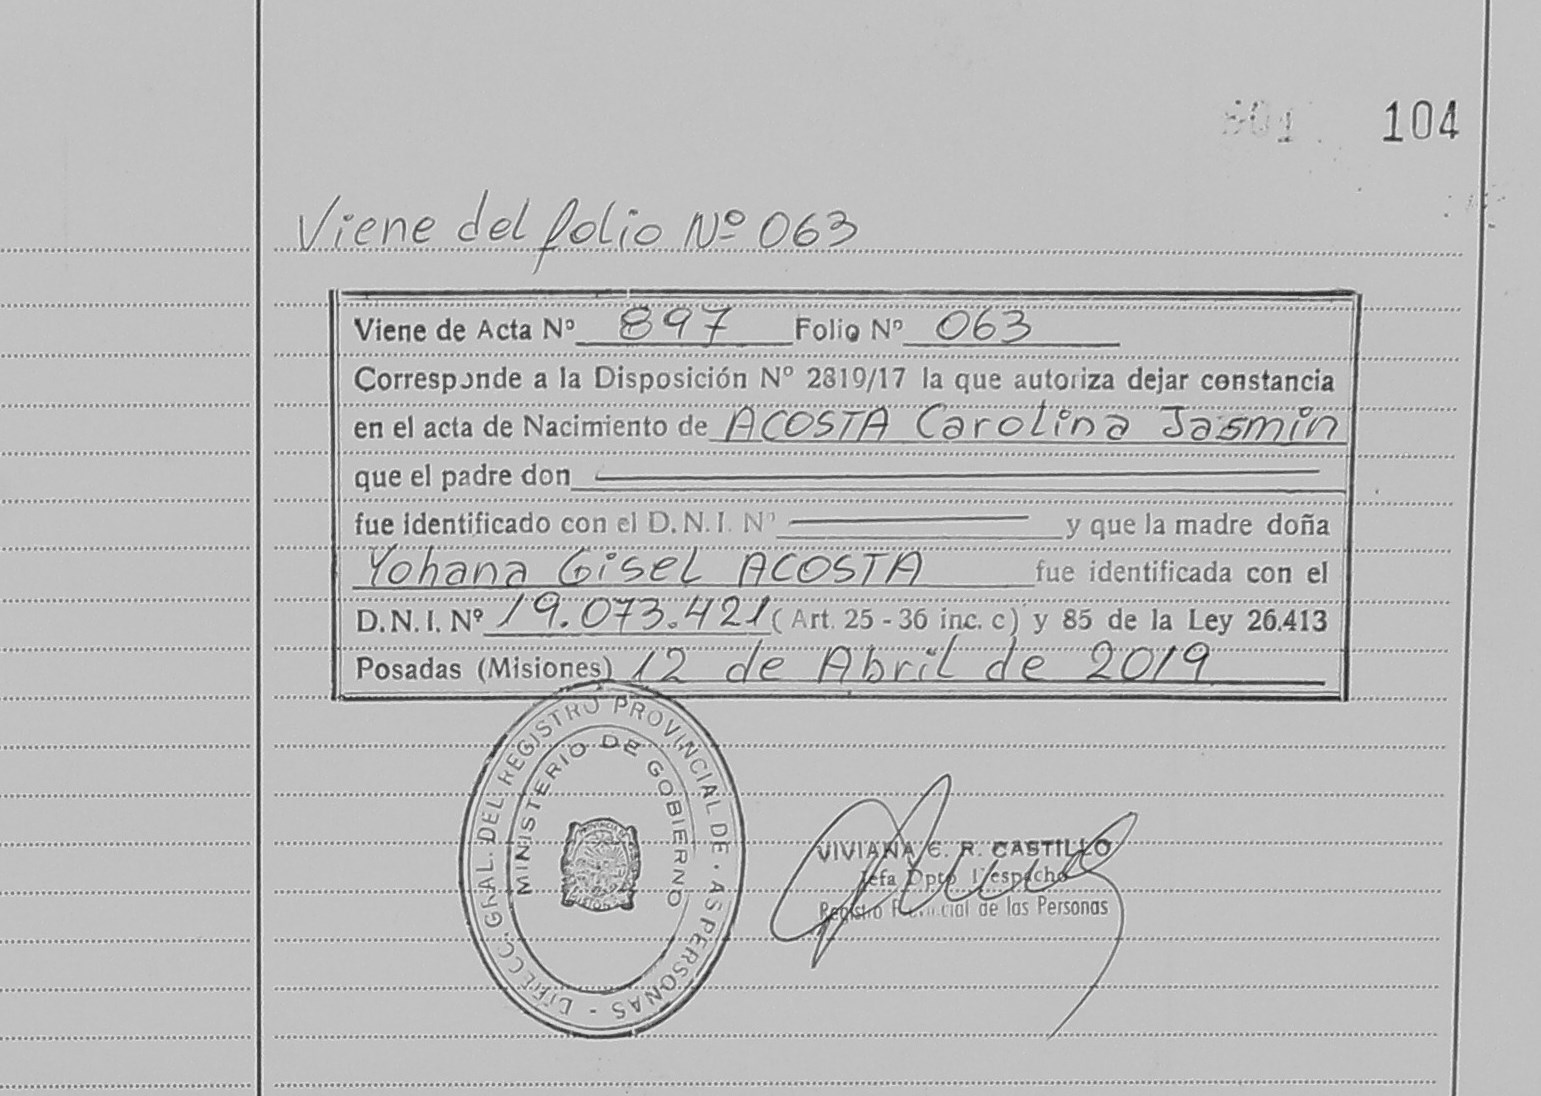 104
Viene del folio Nº 063
Viene de Acta Nº 897 Folio Nº 063
Corresponde a la Disposición Nº 2819/17 la que autoriza dejar constancia
en el acta de Nacimiento de ACOSTA Carolina Jasmin
que el padre don
fue identificado con el D.N.I. Nº y que la madre doña
Yohana Gisel ACOSTA fue identificada con el
D.N.I. Nº 19.073.421 (Art. 25 - 36 inc. c) y 85 de la Ley 26.413
Posadas (Misiones) 12 de Abril de 2019
DIRECC. GRAL. DEL REGISTRO PROVINCIAL DE LAS PERSONAS -
MINISTERIO DE GOBIERNO
VIVIANA C. R. CASTILLO
Jefa Dpto. Despacho
Registro Provincial de las Personas